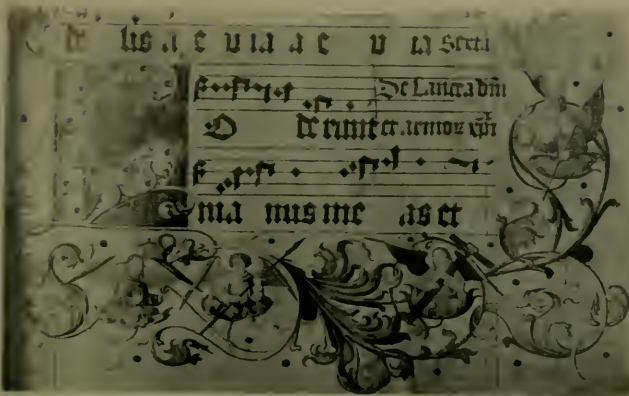 lis a e u ia a e u ia Sexta
De Lancea dni
O de runt et armor xpi
ma nus me as et